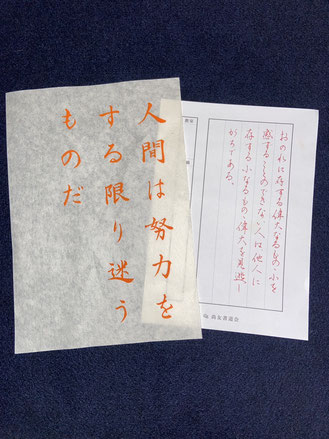 人間は努力を
する限り迷う
ものだ
おのれに存する偉大なるもの小を
感ずることのできない人は他人に
存する小なるもの偉大を見逃し
がちである。